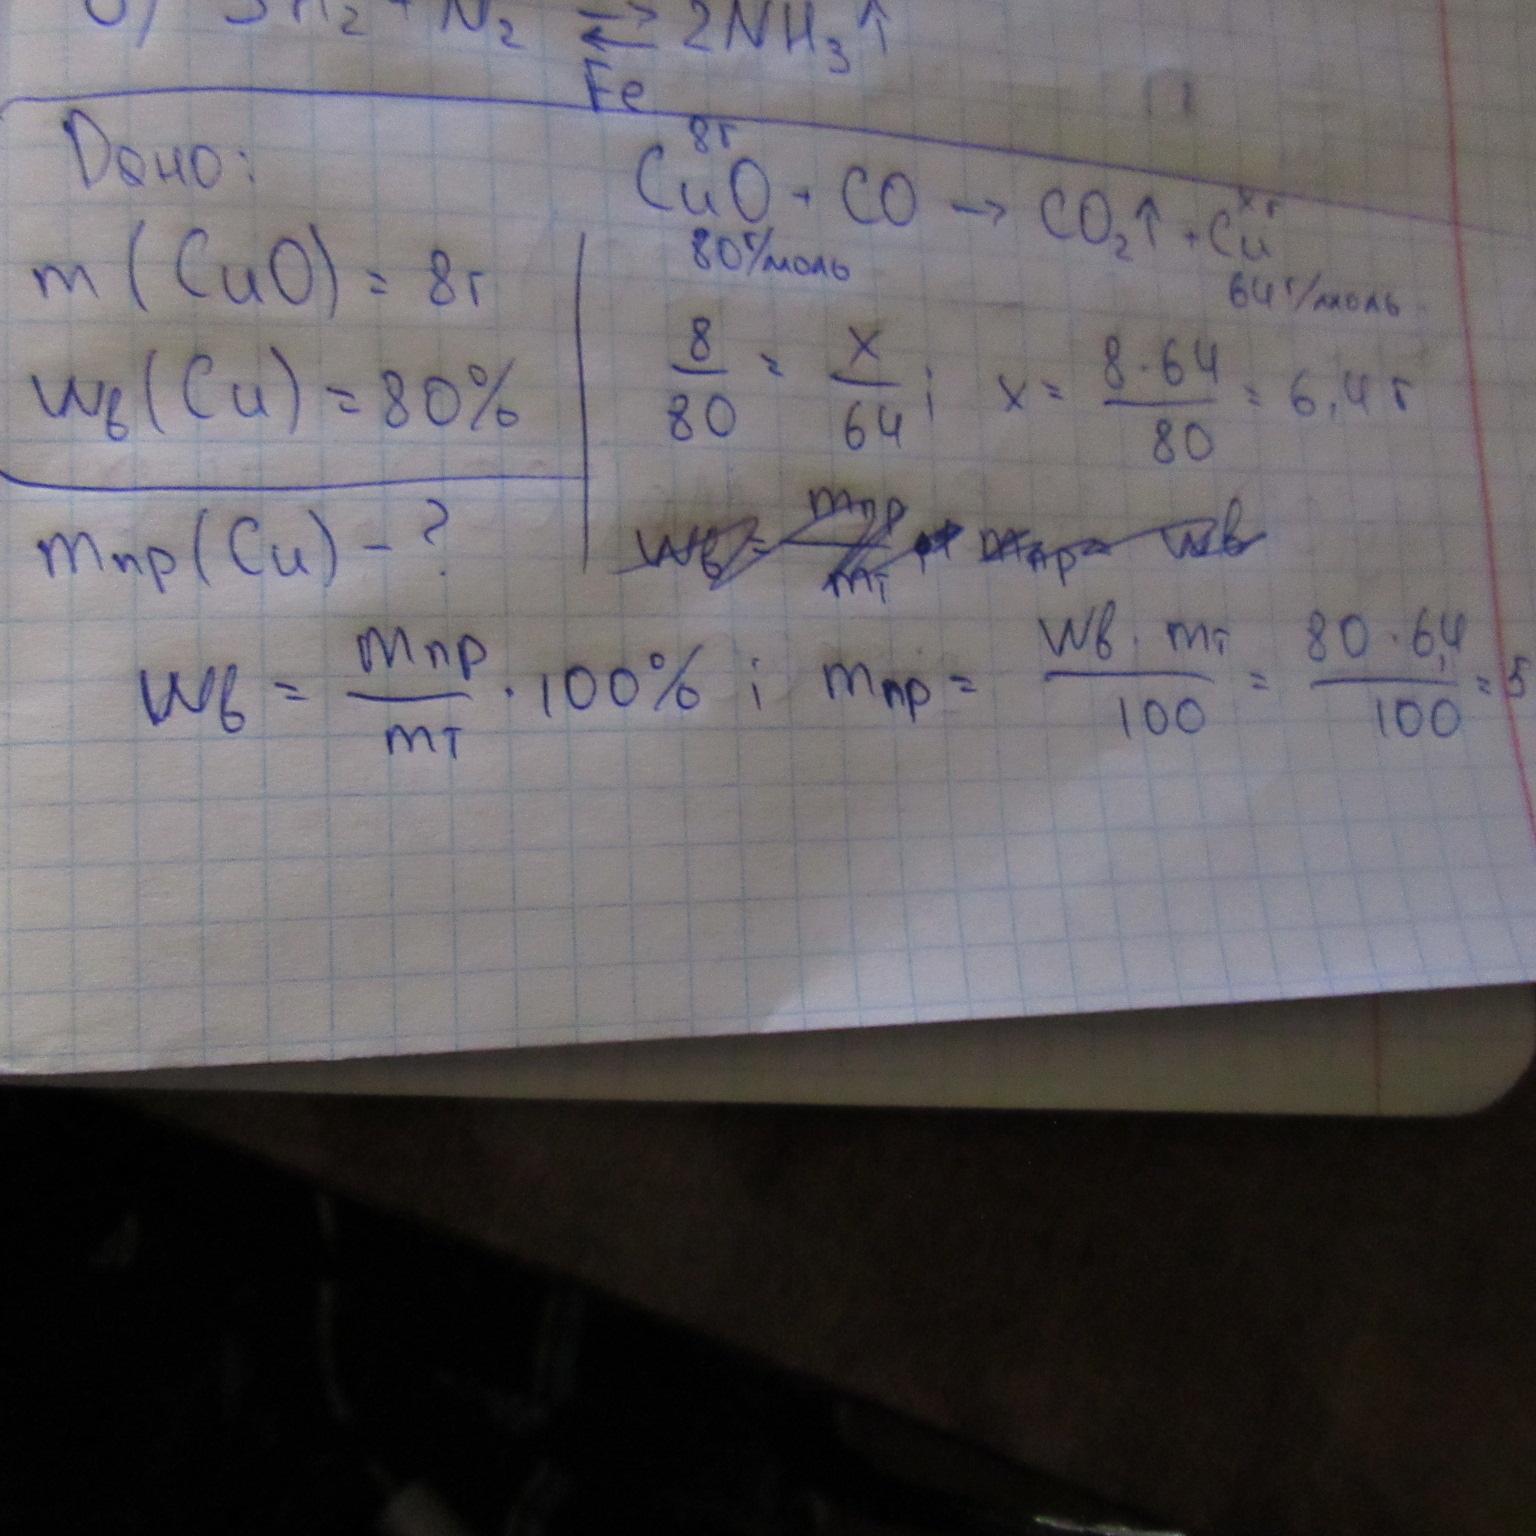 3H₂ + N₂ ⇄ 2NH₃↑
Fe
Дано:
m (CuO) = 8г
Wв (Cu) = 80%
mпр (Cu) - ?
8г xг
CuO + CO → CO₂↑ + Cu
80г/моль 64г/моль
8/80 = x/64 ; x = 8·64/80 = 6,4 г
Wв = mпр/mт · 100% ; mпр = Wв · mт/100 = 80 · 6,4/100 = 5